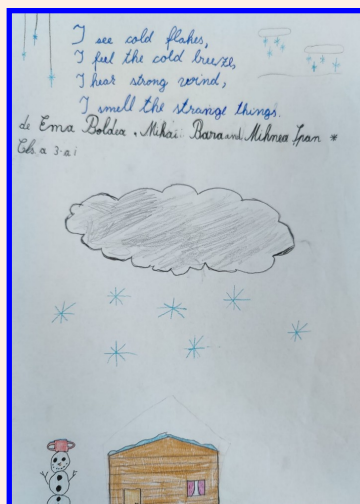 I see cold flakes,
I feel the cold breeze,
I hear strong wind,
I smell the strange things.
de Ema Boldea, Mihai Bara and Mihnea Ipan *
Cls. a 3-a i